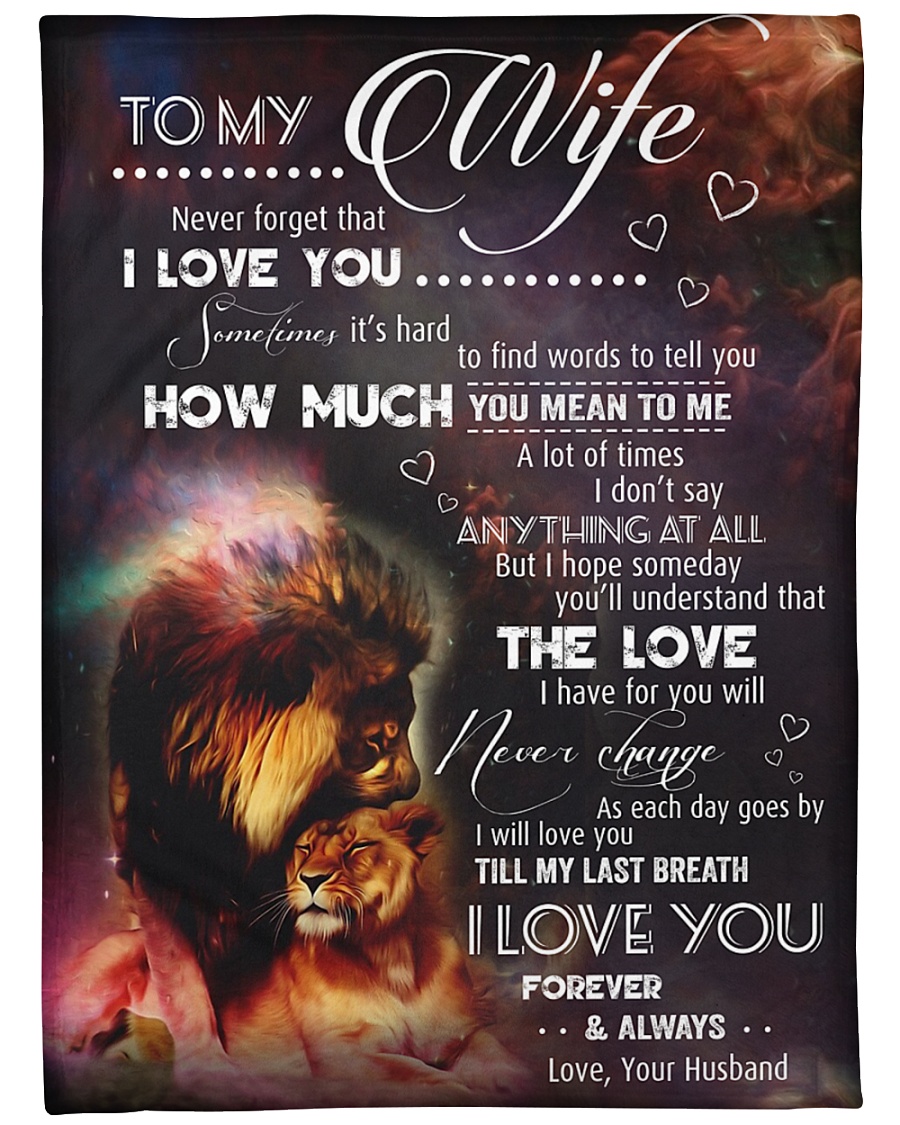 TO MY Wife
Never forget that
I LOVE YOU
Sometimes it's hard
to find words to tell you
HOW MUCH YOU MEAN TO ME
A lot of times
I don't say
ANYTHING AT ALL
But I hope someday
you'll understand that
THE LOVE
I have for you will
Never change
As each day goes by
I will love you
TILL MY LAST BREATH
I LOVE YOU
FOREVER
& ALWAYS
Love, Your Husband